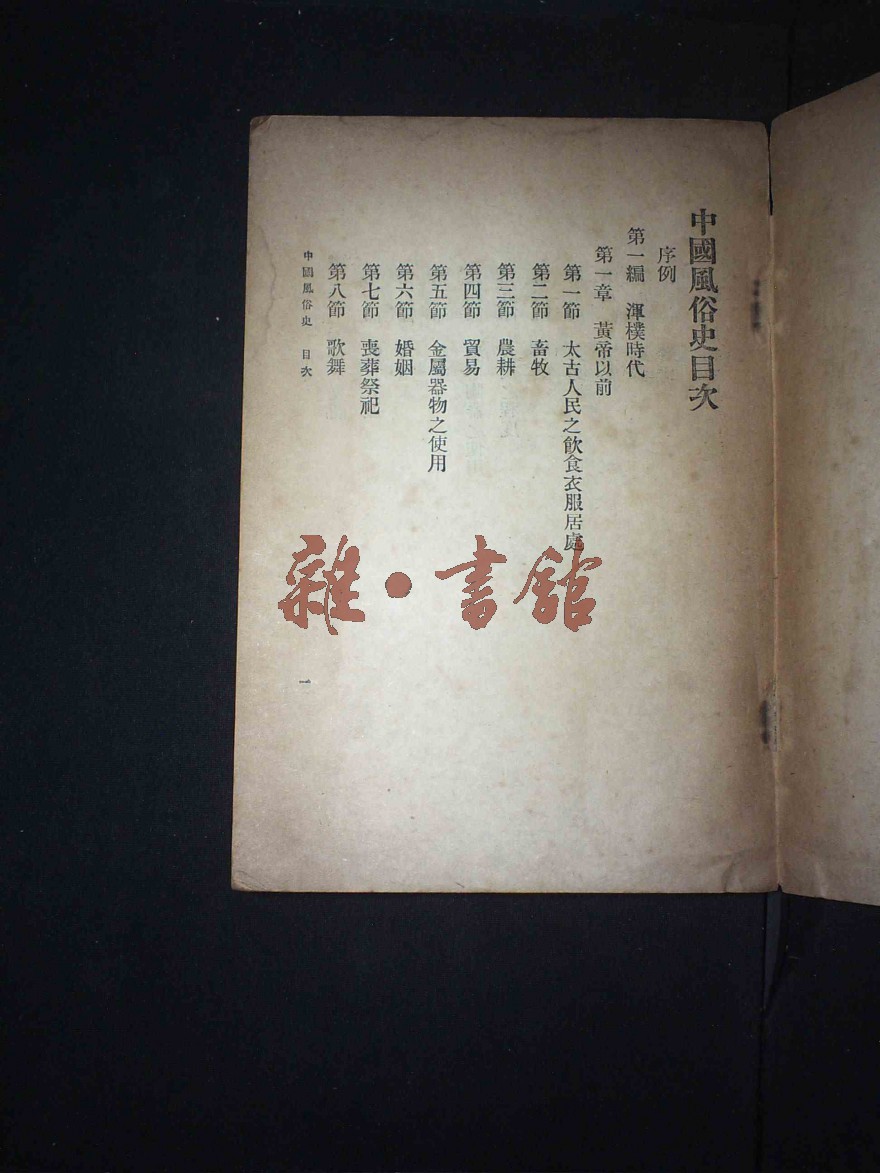 中國風俗史目次
序例
第一編　渾樸時代
第一章　黃帝以前
第一節　太古人民之飲食衣服居處
第二節　畜牧
第三節　農耕
第四節　貿易
第五節　金屬器物之使用
第六節　婚姻
第七節　喪葬祭祀
第八節　歌舞
中國風俗史　目次
一
雜·書館